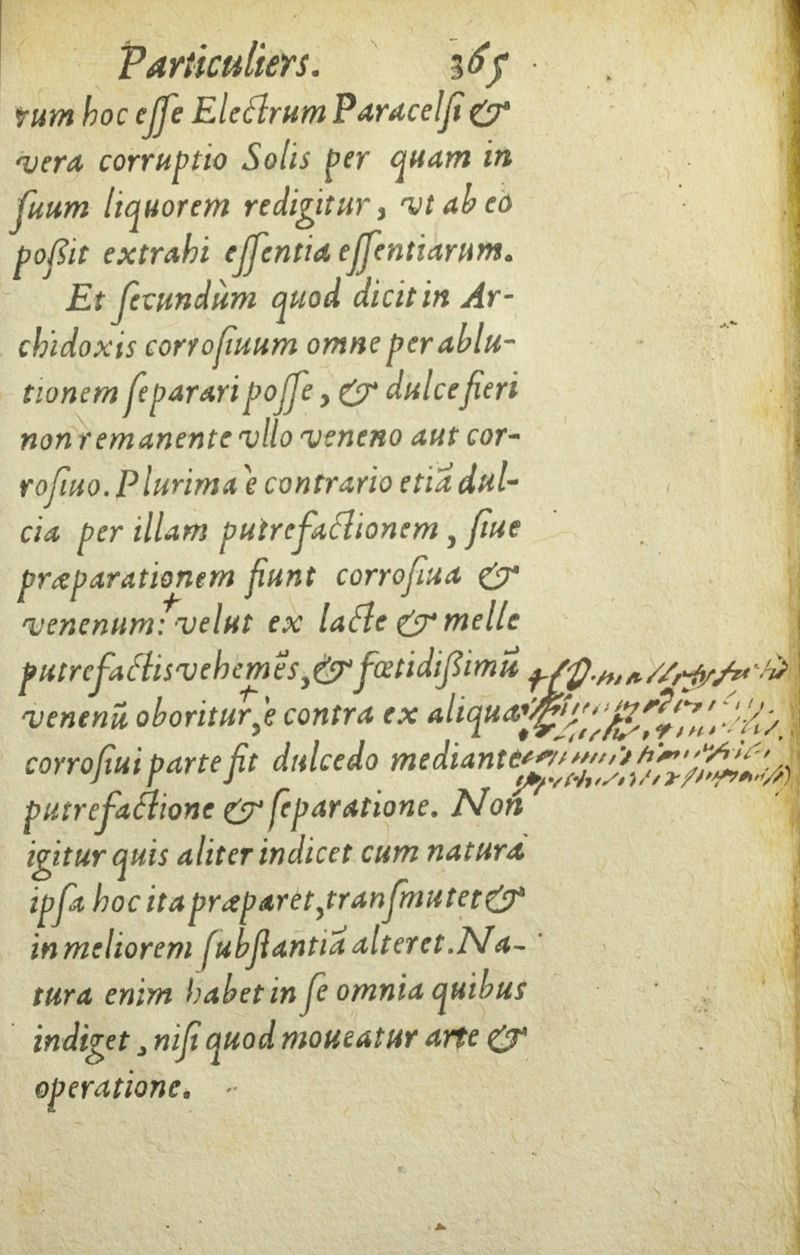 Particuliers. 365
rum hoc esse Electrum Paracelsi &
vera corruptio Solis per quam in
suum liquorem redigitur, vt ab eo
poßit extrahi essentia essentiarum.
Et secundùm quod dicit in Ar-
chidoxis corrosiuum omne per ablu-
tionem separari posse, & dulce fieri
non remanente vllo veneno aut cor-
rosiuo. Plurima è contrario etiã dul-
cia per illam putrefactionem, siue
præparationem fiunt corrosiua &
venenum: velut ex lacte & melle
putrefactis vehemẽs, & fœtidißimũ
venenũ oboritur, è contra ex aliqua
corrosiui parte fit dulcedo mediante
putrefactione & separatione. Non
igitur quis aliter indicet cum natura
ipsa hoc ita præparet, transmutet &
in meliorem substantiã alteret. Na-
tura enim habet in se omnia quibus
indiget, nisi quod moueatur arte &
operatione.